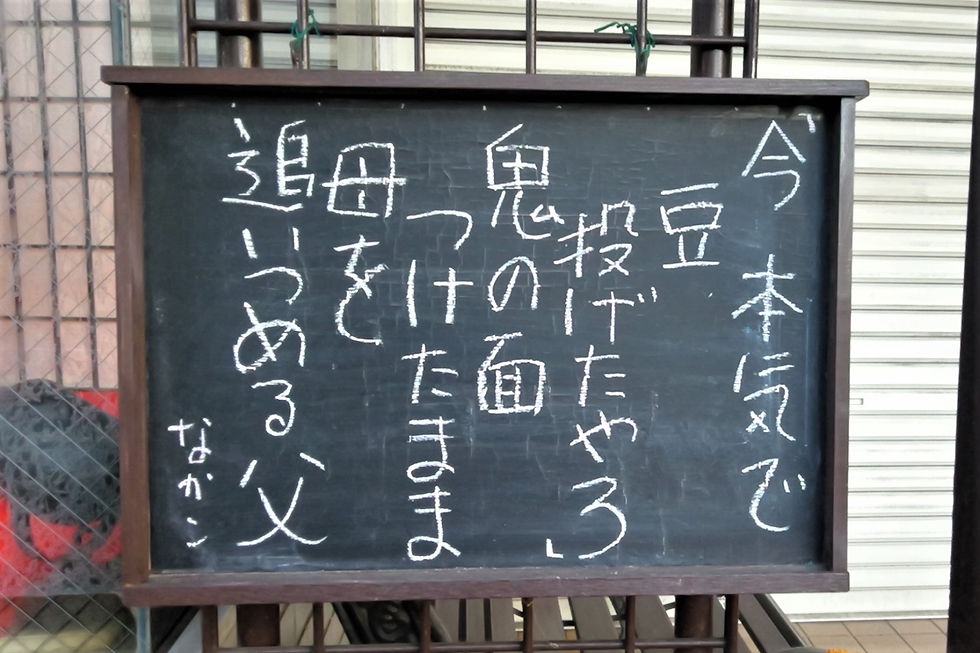 「今本気で
豆
投げたやろ」
鬼の面
つけたまま
母を
追いつめる父
なかこ